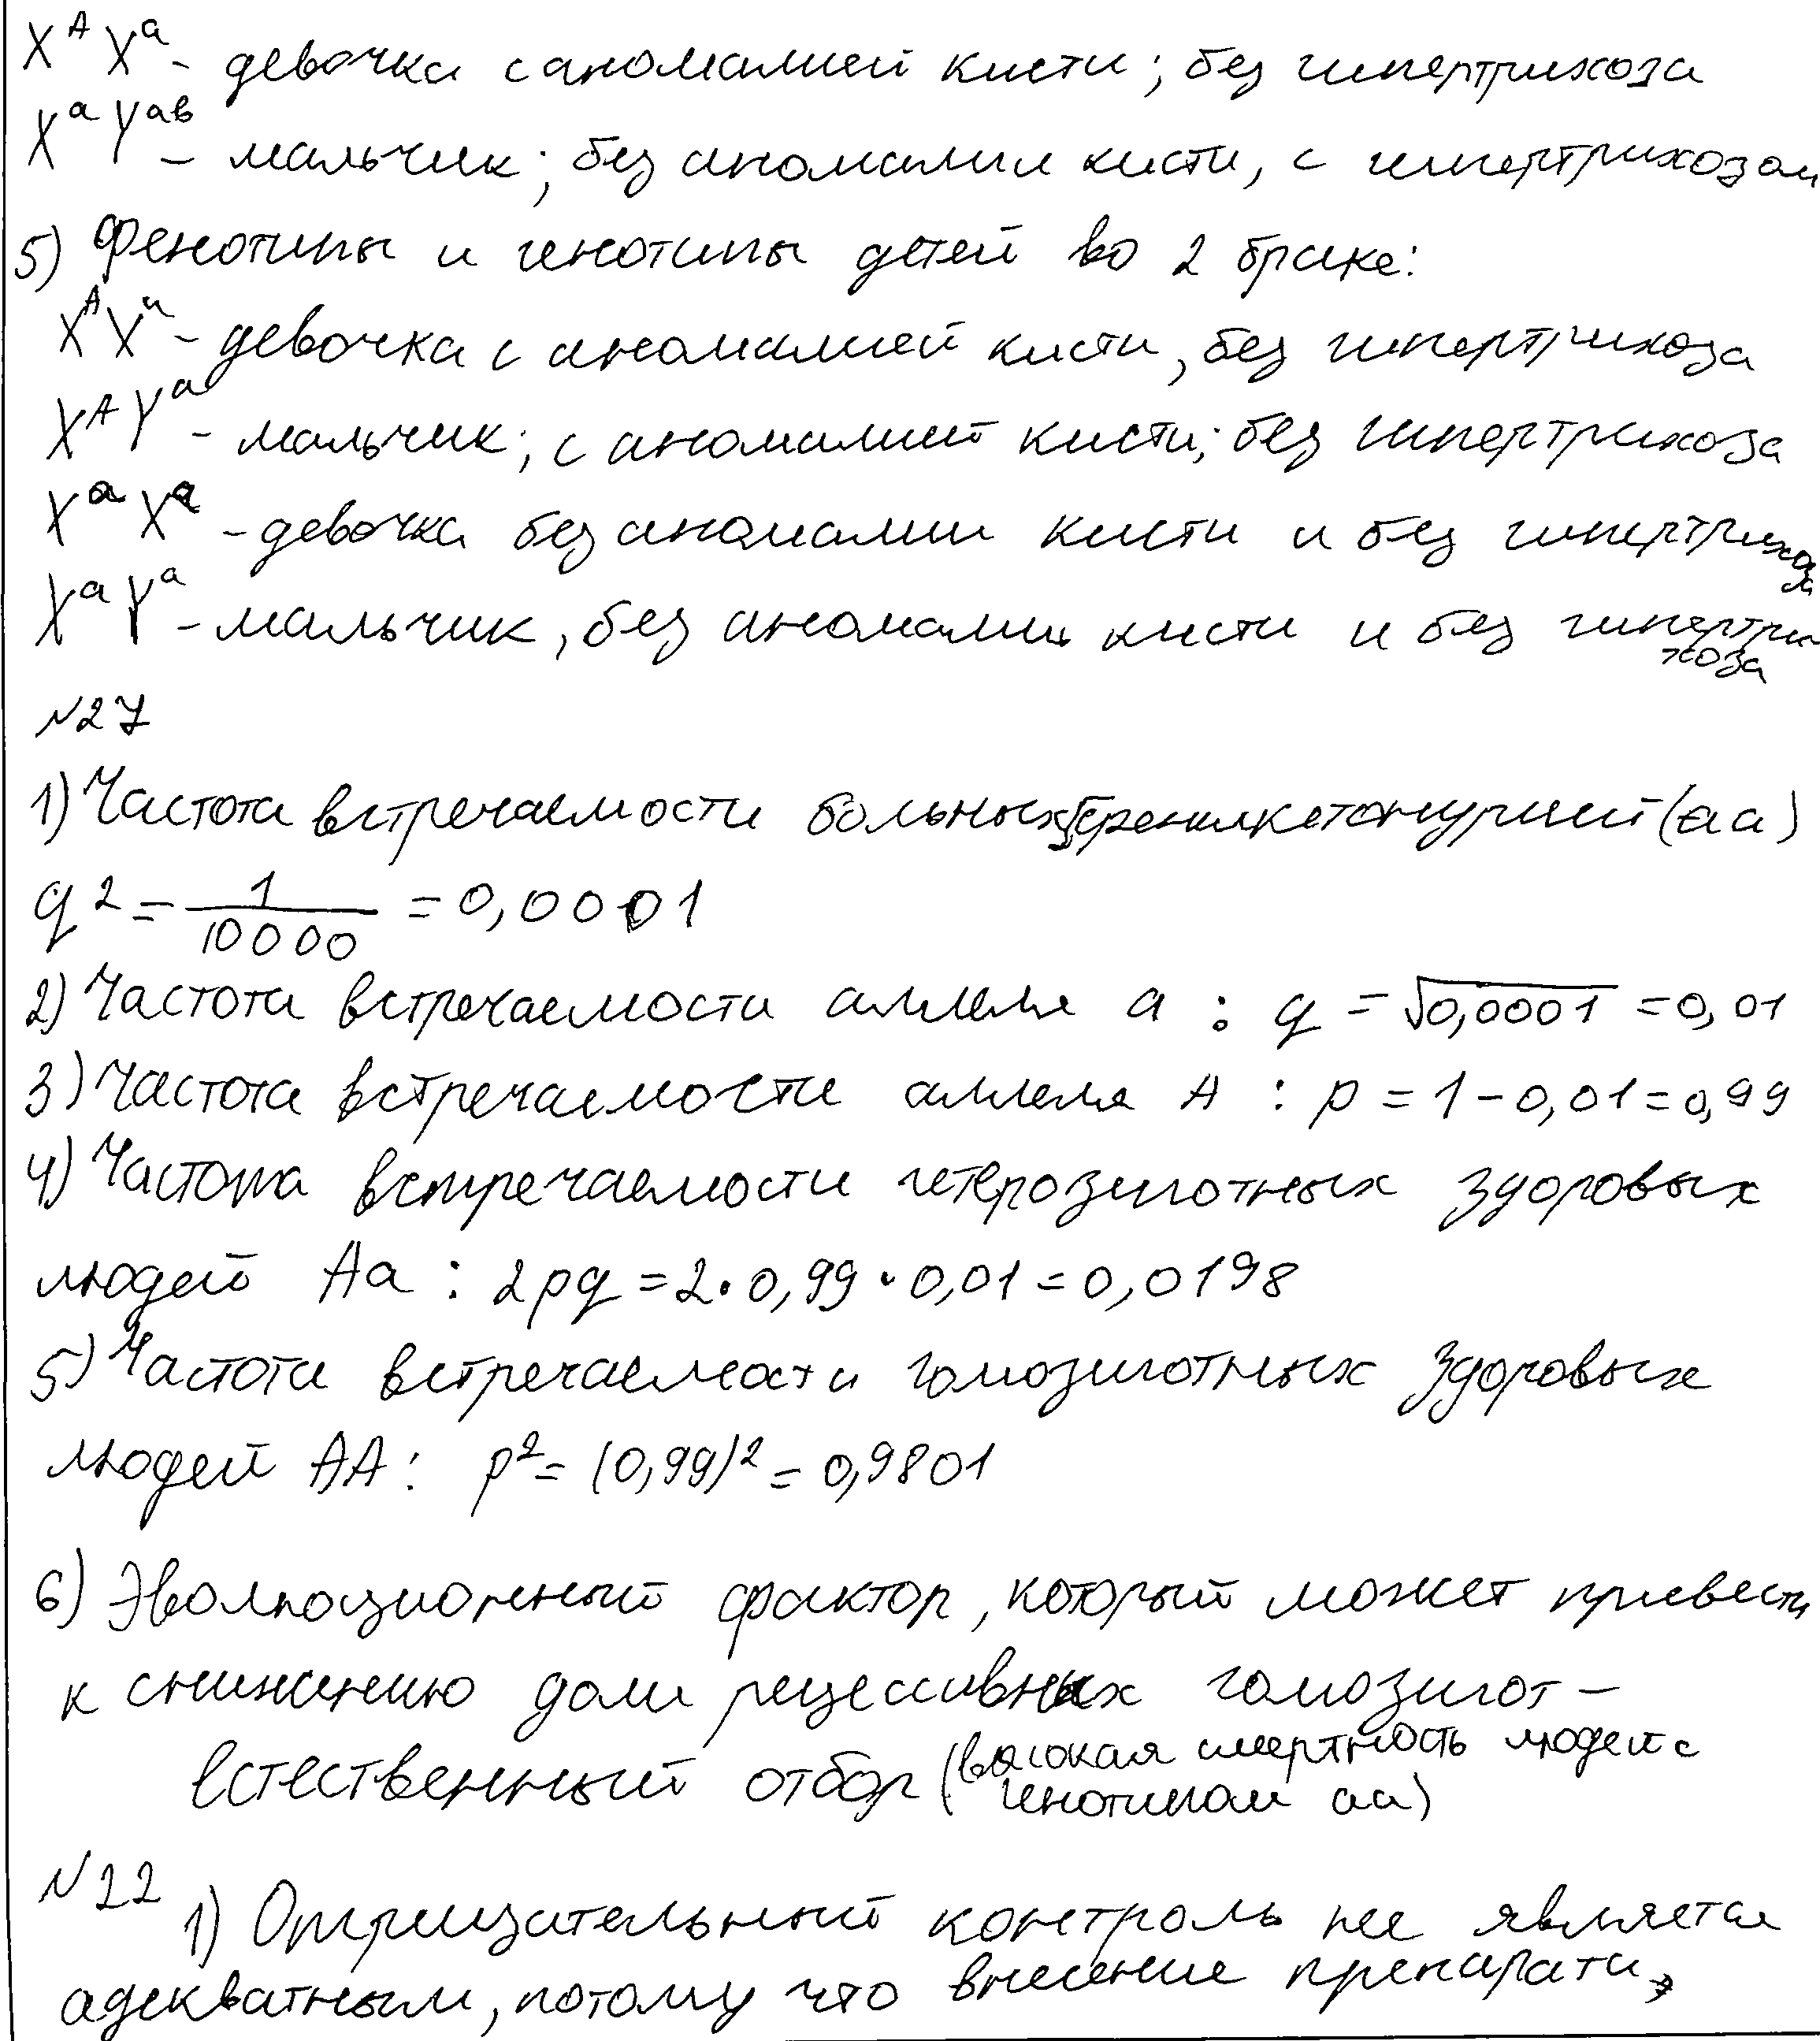 X^A X^a - девочка с аномалией кисти; без гипертрихоза
X^a Y^ab - мальчик; без аномалии кисти, с гипертрихозом
5) Фенотипы и генотипы детей во 2 браке:
X^A X^a - девочка с аномалией кисти, без гипертрихоза
X^A Y^a - мальчик; с аномалией кисти; без гипертрихоза
X^a X^a - девочка без аномалии кисти и без гипертрихоза
X^a Y^a - мальчик, без аномалии кисти и без гипертрихоза
N27
1) Частота встречаемости больных фенилкетонурией (aa)
q² = 1/10000 = 0,0001
2) Частота встречаемости аллеля a : q = √0,0001 = 0,01
3) Частота встречаемости аллеля A : p = 1 - 0,01 = 0,99
4) Частота встречаемости гетерозиготных здоровых
людей Aa : 2pq = 2 · 0,99 · 0,01 = 0,0198
5) Частота встречаемости гомозиготных здоровых
людей AA : p² = (0,99)² = 0,9801
6) Эволюционный фактор, который может привести
к снижению доли рецессивных гомозигот -
естественный отбор (высокая смертность людей с
генотипом aa)
N22
1) Отрицательный контроль не является
адекватным, потому что внесение препарата,